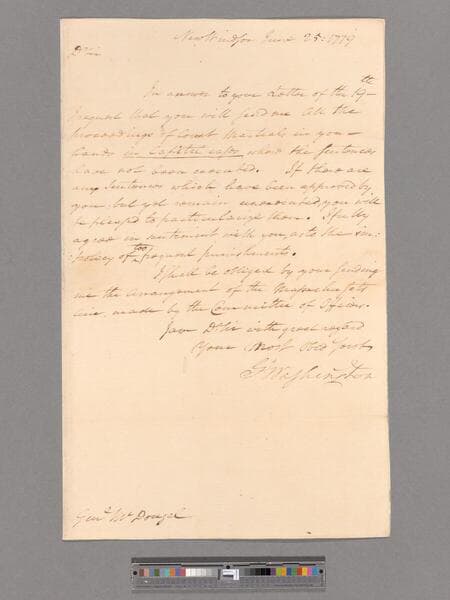 New Windsor June 25: 1779
Dr Sir
In answer to your Letter of the 19th
I request that you will send me all the
Proceedings of Court Martials in your
hands in capital cases where the Sentences
have not been executed. If there are
any Sentences which have been approved by
you but yet remain unexecuted you will
be pleased to particularize them. I fully
agree in sentiment with you, as to the im:
:policy of too frequent punishments.
I shall be obliged by your sending
me the arrangement of the Massachusetts
line, made by the Committee of Officers.
I am Dr Sir with great regard
Your Most Obed Servt
Go Washington
Genl McDougal